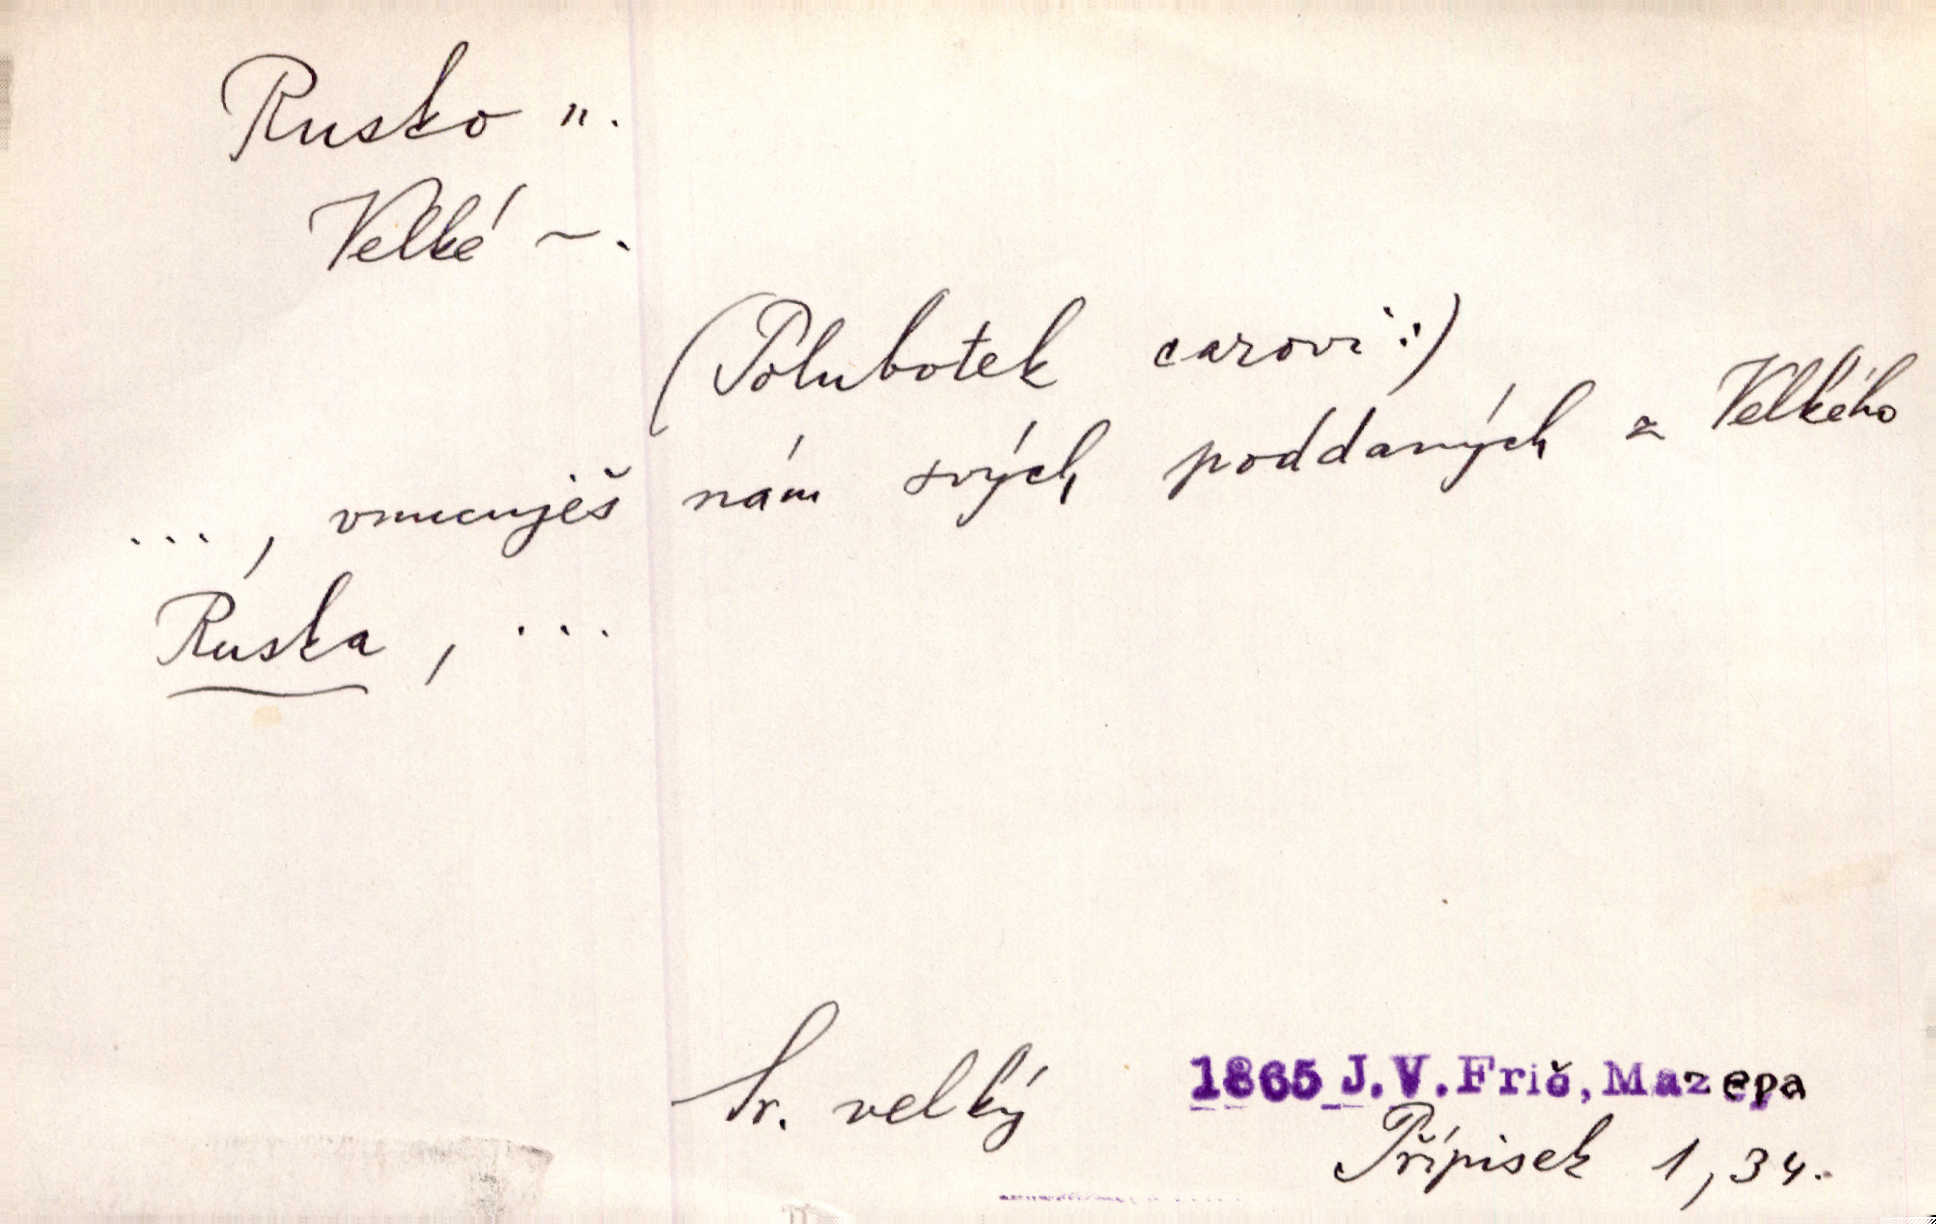 Rusko n.
Velké ~.
(Polubotek carovi:)
..., vnucuješ nám svých poddaných z Velkého
Ruska, ...
Sr. velký
1865 J.V.Frič, Mazepa
Přípisek 1, 34.